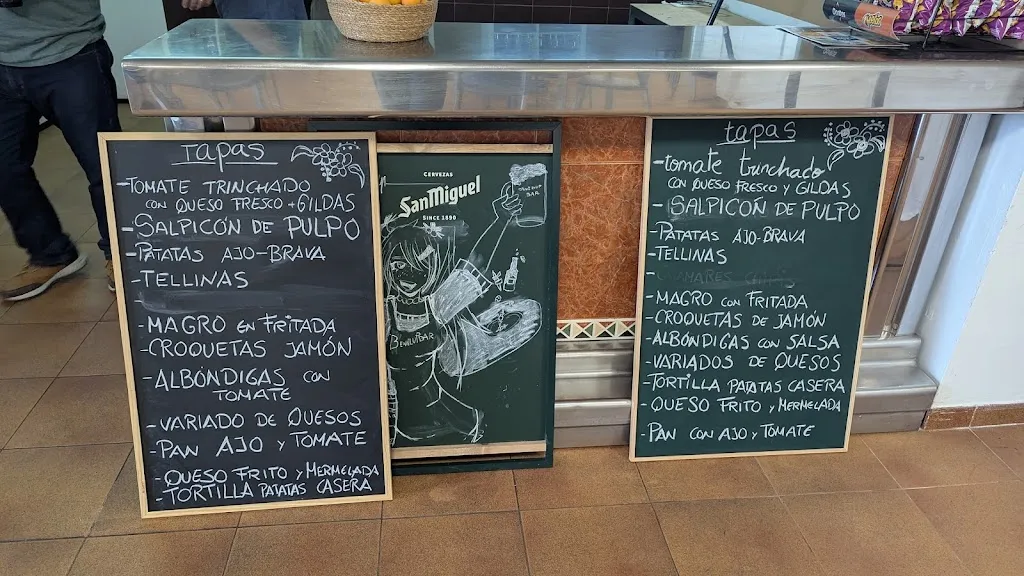 TAPAS
-TOMATE TRINCHADO
CON QUESO FRESCO + GILDAS
-SALPICÓN DE PULPO
-PATATAS AJO-BRAVA
-TELLINAS
-
-MAGRO EN FRITADA
-CROQUETAS JAMÓN
-ALBÓNDIGAS CON
TOMATE
-VARIADO DE QUESOS
-PAN AJO Y TOMATE
-QUESO FRITO Y MERMELADA
-TORTILLA PATATAS CASERA
CERVEZAS
SanMiguel
SINCE 1890
BAR
tapas
-tomate trinchado
CON QUESO FRESCO Y GILDAS
- SALPICÓN DE PULPO
-PATATAS AJO-BRAVA
-TELLINAS
-
-MAGRO CON FRITADA
-CROQUETAS DE JAMÓN
-ALBÓNDIGAS CON SALSA
-VARIADOS DE QUESOS
-TORTILLA PATATAS CASERA
-QUESO FRITO Y MERMELADA
-PAN CON AJO Y TOMATE